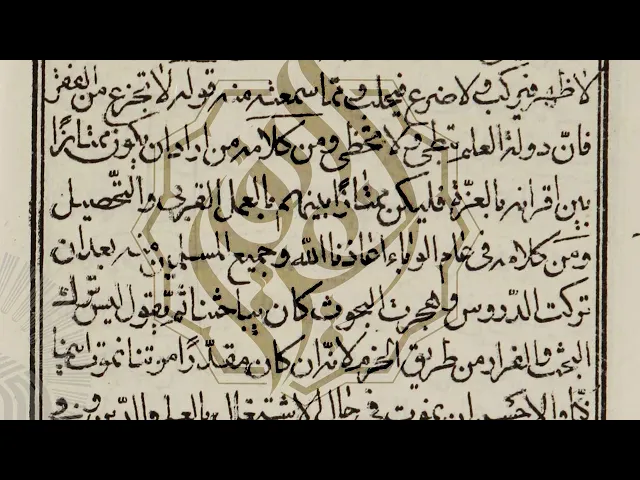 لا ظهر فيركب ولا ضرع فيحلب ومما سمعته منه قوله لا تجزع من الفقر
فانّ دولة العلم تعلى ولا تخطى ومن كلامه من اراد ان يكون ممتازًا
بين اقرانه بالعزّة فليكن ممتازًا بينهم بالعمل القربى والتّحصيل
ومن كلامه فى عام الوباء اعاذنا الله وجميع المسلمين منه بعد ان
تركت الدّروس وهجرت البحوث كان يباحثنا ثمّ يقول اليس ترك
البحث والفرار من طريق الحزم لانّه ان كان مقدّرًا موتنا نموت اينما
كنّا والاحسن ان نموت فى حال الاشتغال بالعلم والدّين